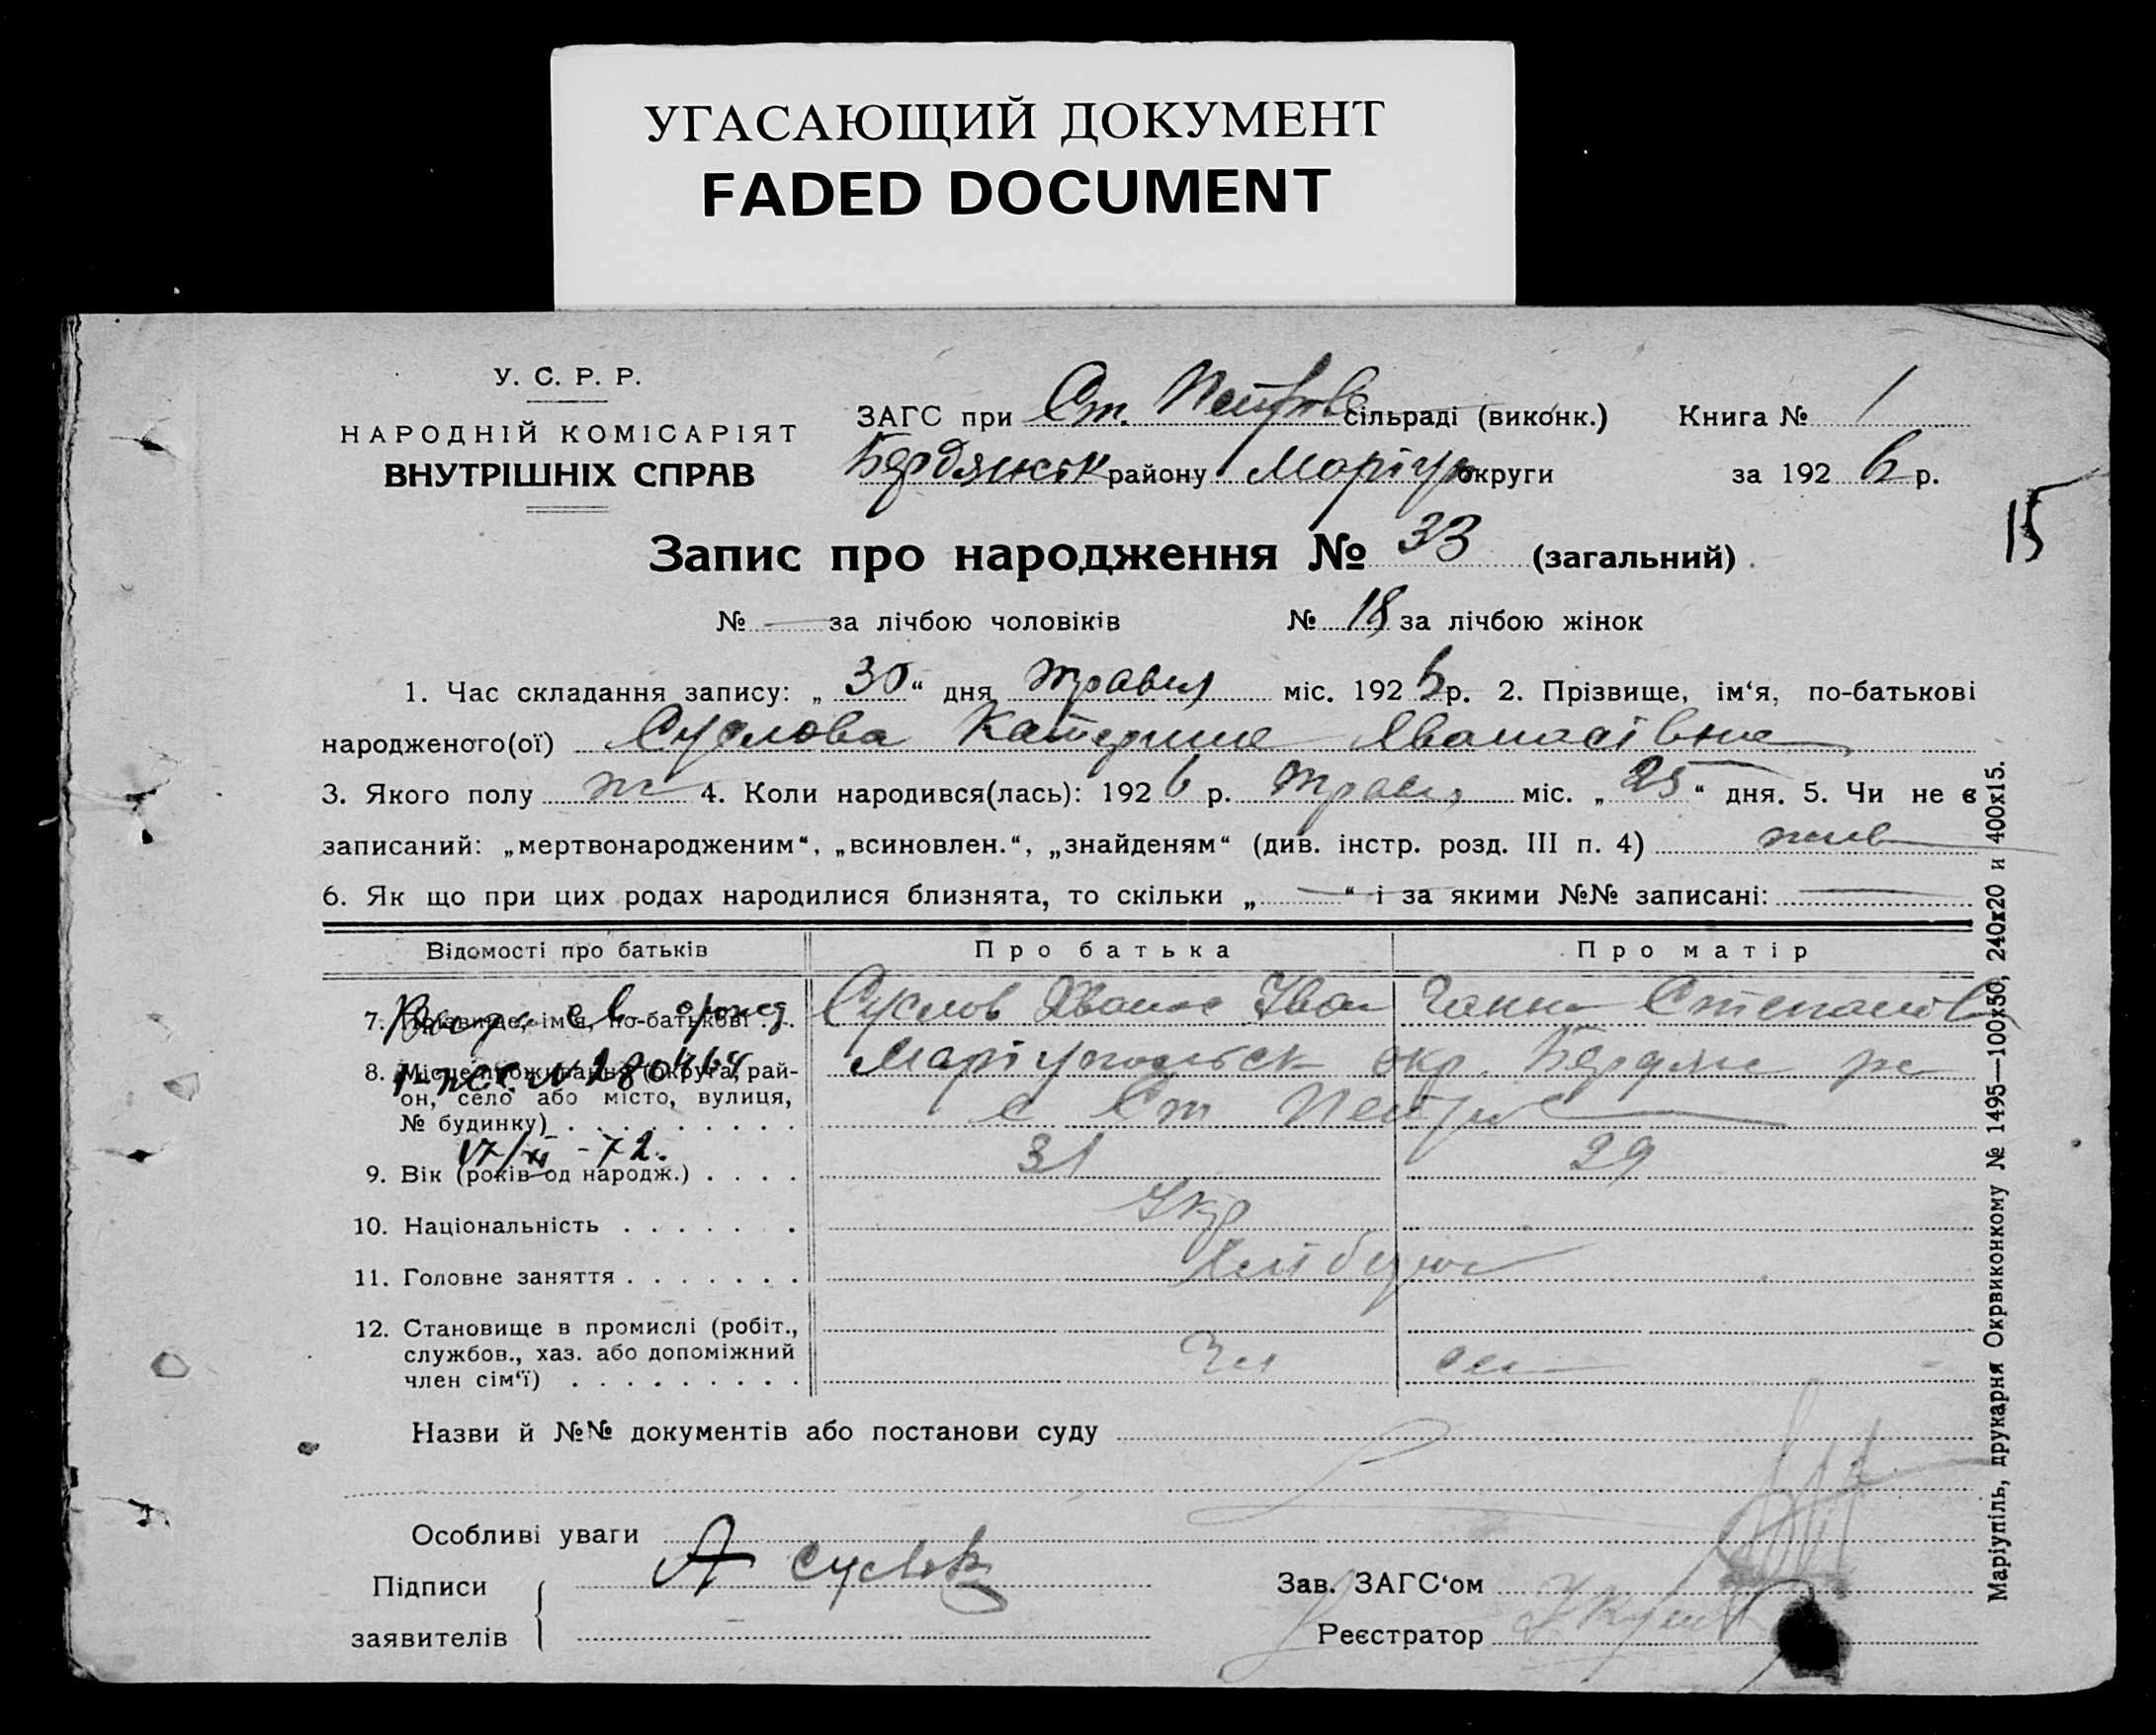 УГАСАЮЩИЙ ДОКУМЕНТ
FADED DOCUMENT
У. С. Р. Р.
НАРОДНІЙ КОМІСАРІЯТ
ВНУТРІШНІХ СПРАВ
ЗАГС при Ст. Петров сільраді (виконк.) Книга № 1
Бердянськ району Маріуп округи за 192 6 р.
15
Запис про народження № 33 (загальний)
№ — за лічбою чоловіків № 18 за лічбою жінок
1. Час складання запису: „ 30 “ дня травня міс. 192 6 р. 2. Прізвище, ім‘я, по-батькові
народженого(ої) Суслова Катерина
3. Якого полу ж 4. Коли народився(лась): 192 6 р. травня міс. „ 25 “ дня. 5. Чи не є
записаний: „мертвонародженим“, „всиновлен.“, „знайденям“ (див. інстр. розд. III п. 4) жив
6. Як що при цих родах народилися близнята, то скільки „ — “ і за якими №№ записані: —
Відомості про батьків Про батька Про матір
7. Прізвище, ім‘я, по-батькові Суслов Іван Ганна Степанов
8. Місце проживання (округа, рай- Маріупольськ окр. Бердян
он, село або місто, вулиця, с Ст Петров
№ будинку)
17/XI - 72.
9. Вік (років од народж.) 31 29
10. Національність Укр
11. Головне заняття Хлібороб
12. Становище в промислі (робіт.,
службов., хаз. або допоміжний
член сім‘ї)
Назви й №№ документів або постанови суду
Особливі уваги
Підписи А
заявителів
Зав. ЗАГС‘ом
Реєстратор
Маріупіль, друкарня Окрвиконкому № 1495—100x50, 240x20 и 400x15.